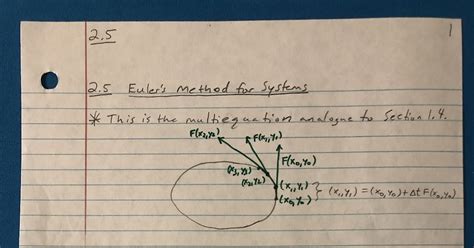 2.5
1
2.5 Euler's Method for Systems
* This is the multiequation analogue to Section 1.4.
F(x₂,y₂) F(x₁,y₁)
F(x₀,y₀)
(x₃,y₃)
(x₂,y₂)
(x₁,y₁) } (x₁,y₁) = (x₀,y₀) + Δt F(x₀,y₀)
(x₀,y₀)